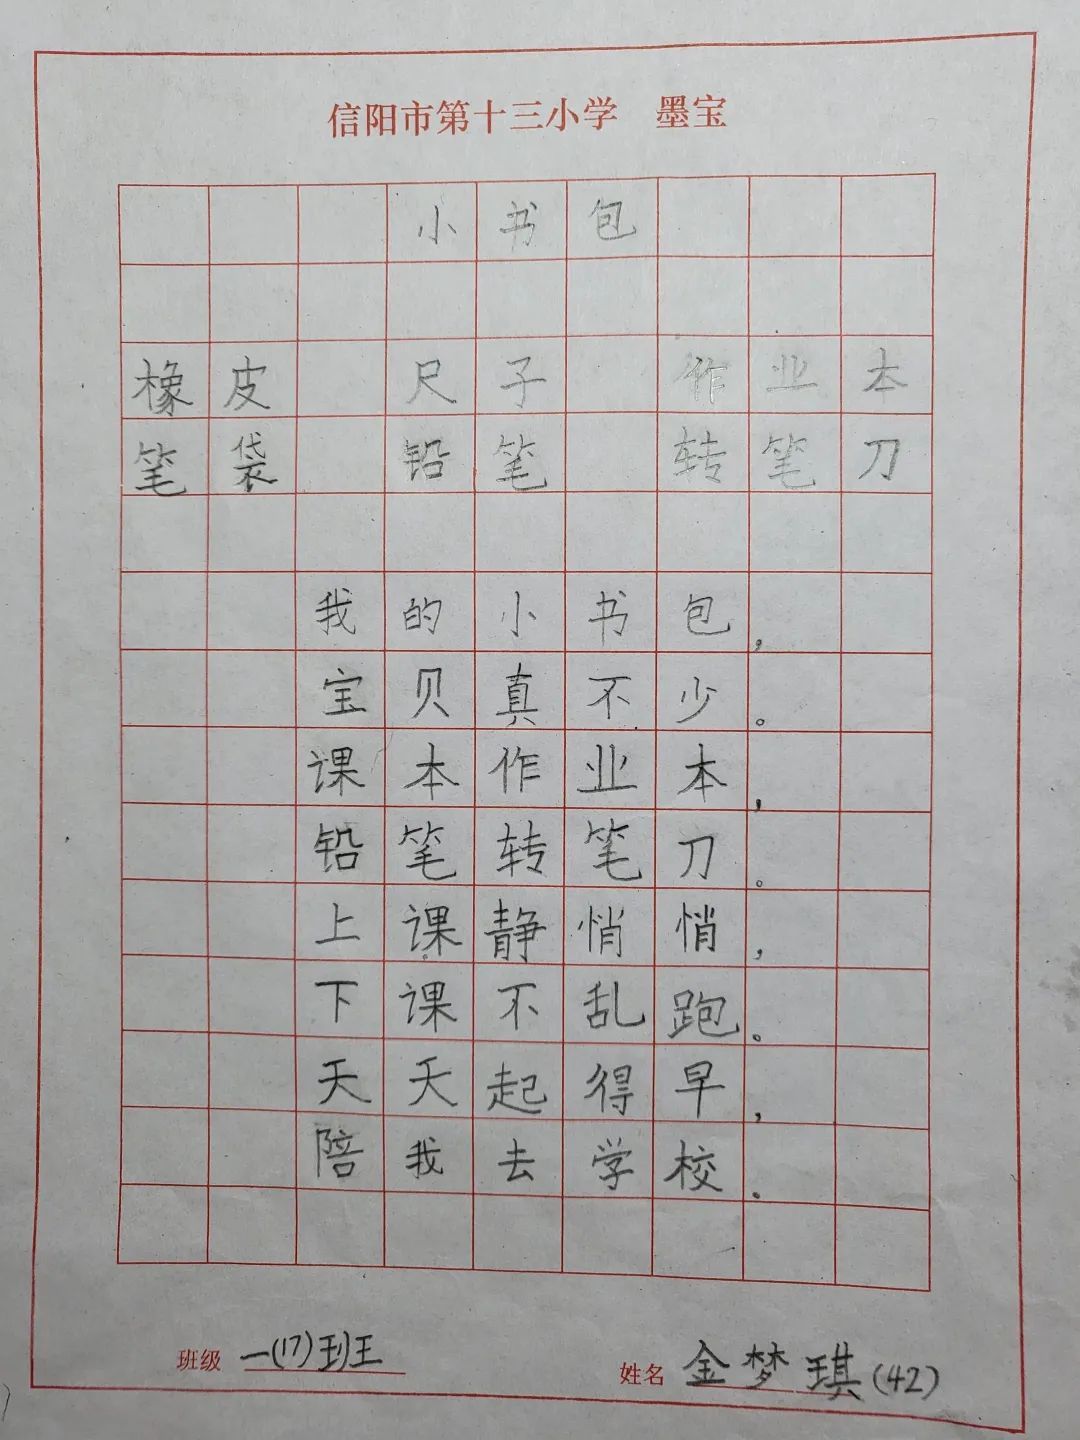 信阳市第十三小学 墨宝
小书包
橡皮 尺子 作业本
笔袋 铅笔 转笔刀
我的小书包,
宝贝真不少。
课本作业本,
铅笔转笔刀。
上课静悄悄,
下课不乱跑。
天天起得早,
陪我去学校。
班级 一(17)班 姓名 金梦琪(42)